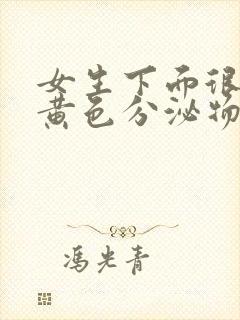 女生下面很
黄色分泌物
冯光青